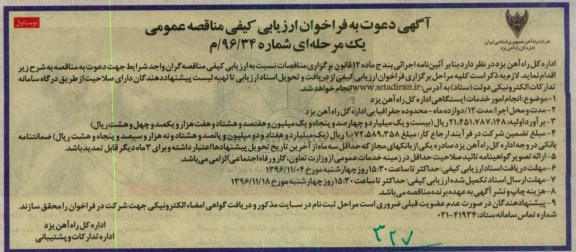 نوبت اول
آگهی دعوت به فراخوان ارزیابی کیفی مناقصه عمومی
یک مرحله‌ای شماره ۹۶/۳۴/م
شرکت راه آهن جمهوری اسلامی ایران
اداره کل راه آهن یزد
اداره کل راه آهن یزد در نظر دارد بنابر آئین‌نامه اجرائی بند ج ماده ۱۲ قانون برگزاری مناقصات نسبت به ارزیابی کیفی مناقصه گران واجد شرایط جهت دعوت به مناقصه به شرح زیر
اقدام نماید. لازم به ذکر است کلیه مراحل برگزاری فراخوان ارزیابی کیفی از دریافت و تحویل اسناد ارزیابی تا تهیه لیست پیشنهاد دهندگان دارای صلاحیت از طریق درگاه سامانه
تدارکات الکترونیکی دولت (ستاد) به آدرس: www.setadiran.ir انجام خواهد شد.
۱- موضوع: انجام امور خدمات ایستگاهی اداره کل راه آهن یزد
۲- مدت و محل اجرا: مدت ۱۲/دوازده ماه- محدوده جغرافیایی اداره کل راه آهن یزد
۳- برآورد اولیه: ۲۱،۴۵۱،۷۸۷،۱۴۸ ریال (بیست و یک میلیارد و چهارصد و پنجاه و یک میلیون و هفتصد و هشتاد و هفت هزار و یکصد و چهل و هشت ریال)
۴- مبلغ تضمین شرکت در فرآیند ارجاع کار: مبلغ ۱،۰۷۲،۵۸۹،۳۵۸ ریال (یک میلیارد و هفتاد و دو میلیون و پانصد و هشتاد و نه هزار و سیصد و پنجاه و هشت ریال) ضمانتنامه
بانکی در وجه اداره کل راه آهن یزد صادره یکی از بانکهای مجاز که حداقل سه ماه از آخرین تاریخ تحویل پیشنهادها اعتبار داشته و برای ۳ ماه دیگر قابل تمدید باشد.
۵- ارائه تصویر گواهینامه تائید صلاحیت حداقل در زمینه خدمات عمومی از وزارت تعاون، کار و رفاه اجتماعی الزامی می‌باشد.
۶- مهلت دریافت اسناد ارزیابی کیفی: حداکثر تا ساعت ۱۵:۳۰ روز چهارشنبه مورخ ۱۳۹۶/۱۱/۰۴
۷- مهلت ارسال اسناد تکمیل شده ارزیابی کیفی: حداکثر تا ساعت ۱۵:۳۰ روز چهارشنبه مورخ ۱۳۹۶/۱۱/۱۸
۸- هزینه چاپ و نشر آگهی به عهده برنده مناقصه می‌باشد.
۹- پیشنهاد دهندگان در صورت عدم عضویت قبلی ضروری است مراحل ثبت نام در سایت مذکور و دریافت گواهی امضاء الکترونیکی جهت شرکت در فراخوان را محقق سازند.
شماره تماس سامانه ستاد: ۴۱۹۳۴-۰۲۱
اداره کل راه آهن یزد
اداره تدارکات و پشتیبانی
۳۲۷